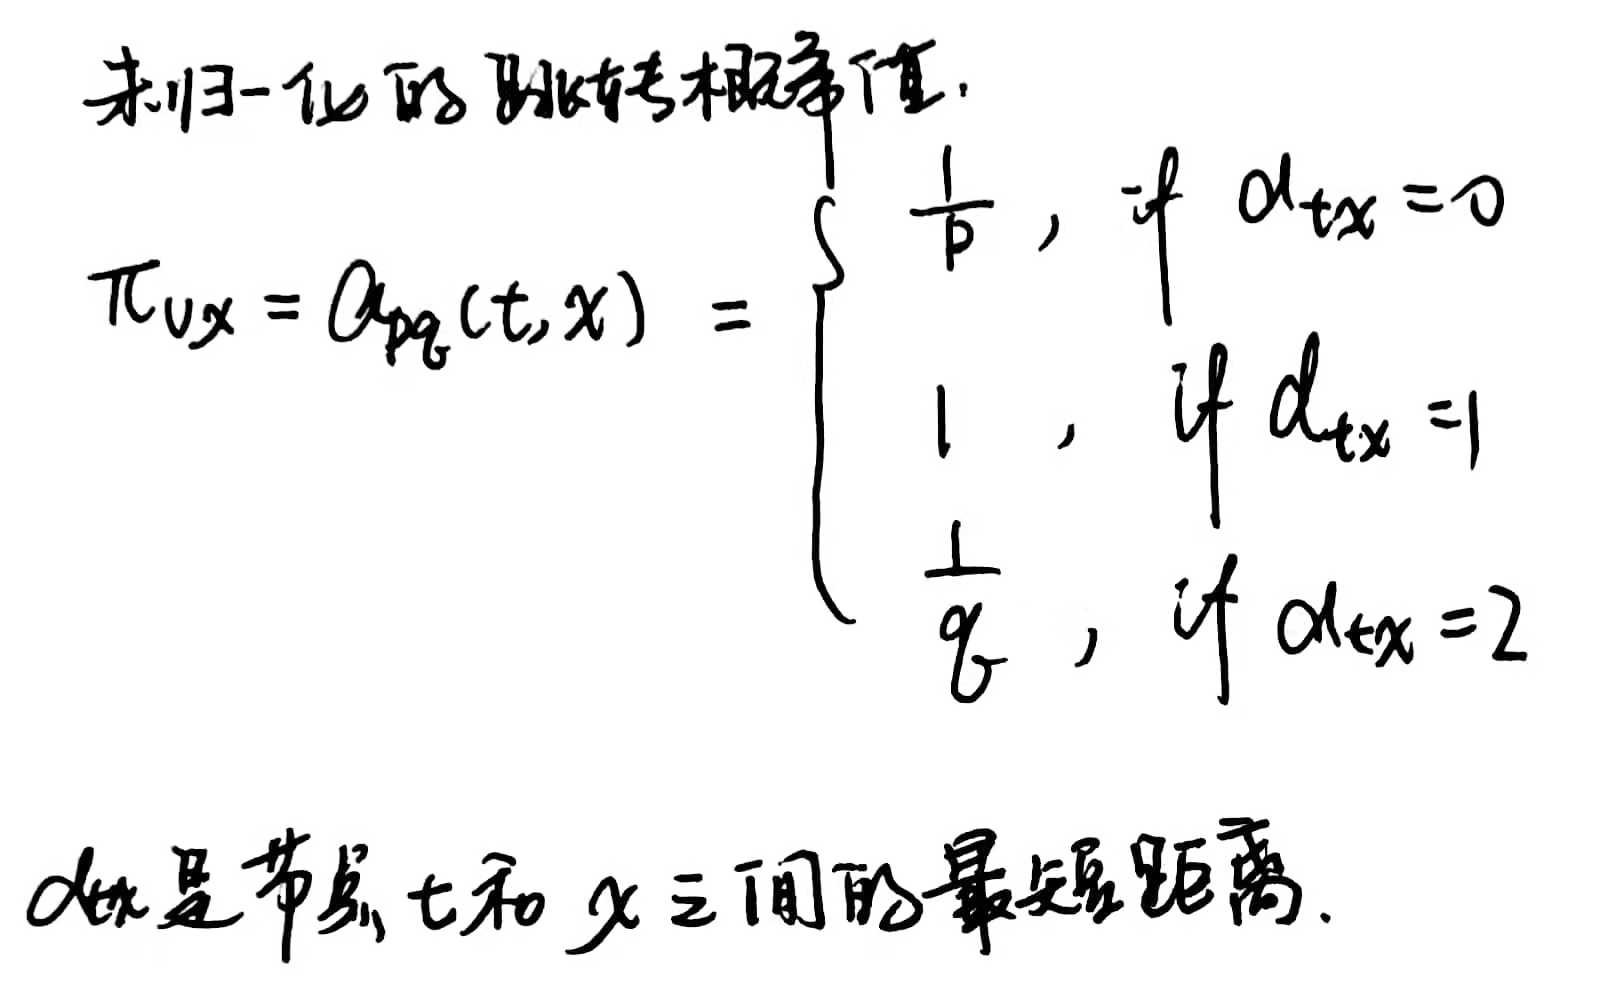 未归一化的跳转概率值.
π_{vx} = α_{pq}(t,x) = { 1/p , if d_{tx} = 0
1 , if d_{tx} = 1
1/q , if d_{tx} = 2
d_{tx}是节点t和x之间的最短距离.